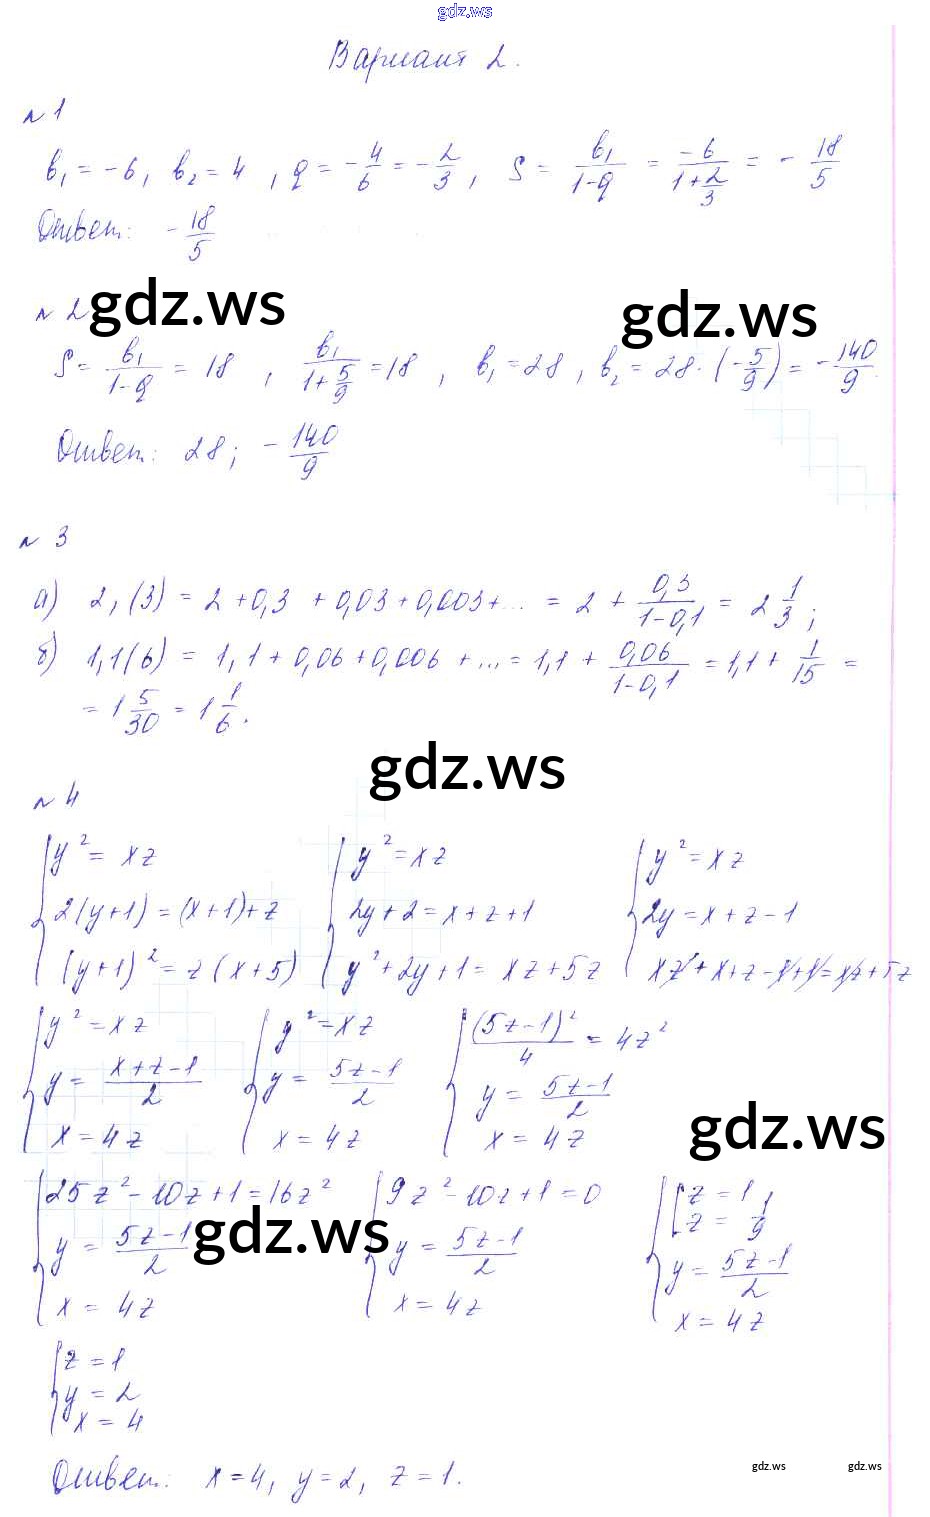 gdz.ws
Вариант 2.
№ 1
b₁ = -6, b₂ = 4, q = -4/6 = -2/3, S = b₁/(1-q) = -6/(1+2/3) = -18/5
Ответ: -18/5
gdz.ws
№ 2
gdz.ws
S = b₁/(1-q) = 18, b₁/(1+5/9) = 18, b₁ = 28, b₂ = 28·(-5/9) = -140/9.
Ответ: 28; -140/9
№ 3
а) 2,(3) = 2 + 0,3 + 0,03 + 0,003 + ... = 2 + 0,3/(1-0,1) = 2 1/3;
б) 1,1(6) = 1,1 + 0,06 + 0,006 + ... = 1,1 + 0,06/(1-0,1) = 1,1 + 1/15 =
= 1 5/30 = 1 1/6.
gdz.ws
№ 4
{ y² = xz { y² = xz { y² = xz
2(y+1) = (x+1)+z 2y+2 = x+z+1 2y = x+z-1
(y+1)² = z(x+5) y²+2y+1 = xz+5z xz+x+z-1+1=xz+5z
{ y² = xz { y² = xz { (5z-1)²/4 = 4z²
y = (x+z-1)/2 y = (5z-1)/2 y = (5z-1)/2
x = 4z x = 4z x = 4z
gdz.ws
{ 25z²-10z+1=16z² { 9z²-10z+1=0 { [ z = 1
z = 1/9
gdz.ws
y = (5z-1)/2 y = (5z-1)/2 y = (5z-1)/2
x = 4z x = 4z x = 4z
{ z = 1
y = 2
x = 4
Ответ: x=4, y=2, z=1.
gdz.ws gdz.ws